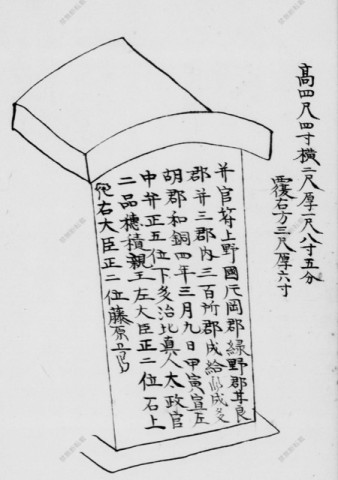 高四尺四寸横二尺厚一尺八寸五分
覆右方三尺厚六寸
弁官苻上野國片岡郡緑野郡甘良
郡并三郡内三百所郡成給羊成多
胡郡和銅四年三月九日甲寅宣左
中弁正五位下多治比真人太政官
二品穂積親王左大臣正二位石上
右大臣正二位藤原